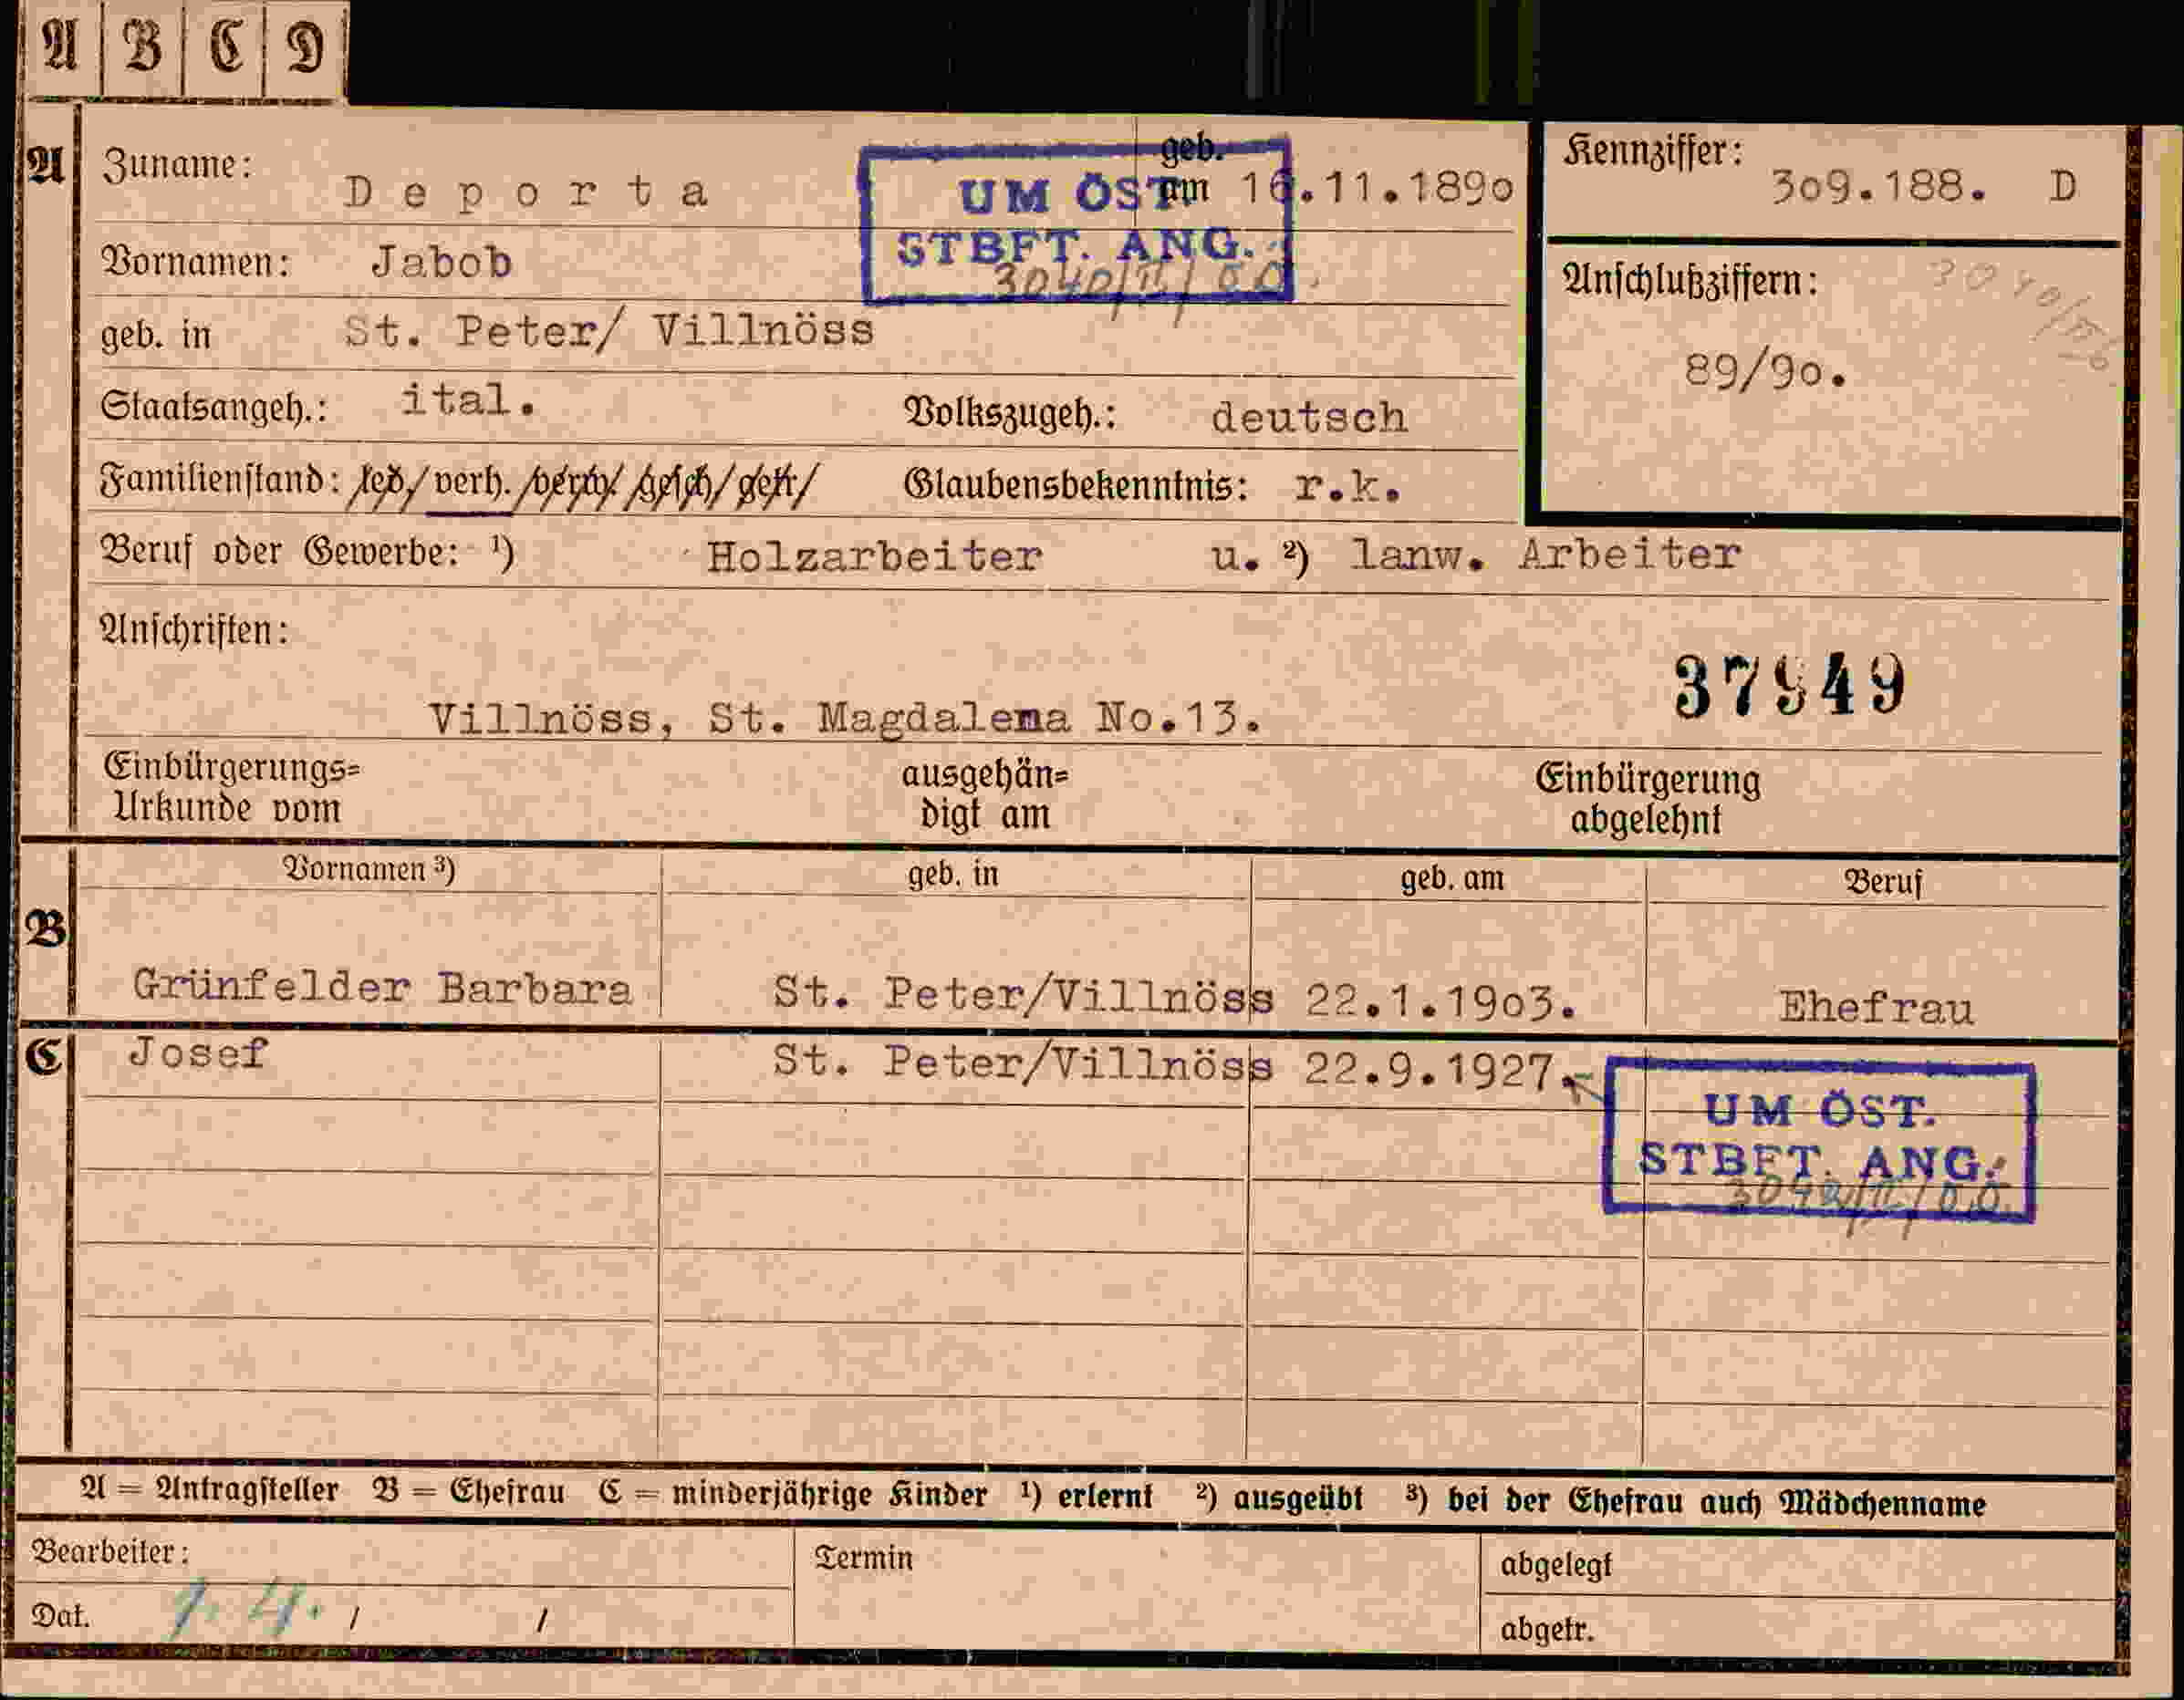 A B C D
A Zuname: Deporta geb. am 16.11.1890
UM ÖST.
STBFT. ANG.
Kennziffer: 309.188. D
Vornamen: Jabob
geb. in St. Peter/ Villnöss
Anschlußziffern:
89/90.
Staatsangeh.: ital. Volkszugeh.: deutsch
Familienstand: led./verh./verw./gesch/getr/ Glaubensbekenntnis: r.k.
Beruf oder Gewerbe: ¹) Holzarbeiter u. ²) lanw. Arbeiter
Anschriften:
37949
Villnöss, St. Magdalena No.13.
Einbürgerungs=
Urkunde vom
ausgehän=
digt am
Einbürgerung
abgelehnt
Vornamen ³) geb. in geb. am Beruf
B Grünfelder Barbara St. Peter/Villnöss 22.1.1903. Ehefrau
C Josef St. Peter/Villnöss 22.9.1927.
UM ÖST.
STBFT. ANG.
A = Antragsteller B = Ehefrau C = minderjährige Kinder ¹) erlernt ²) ausgeübt ³) bei der Ehefrau auch Mädchenname
Bearbeiter: Termin abgelegt
Dat. / / abgetr.